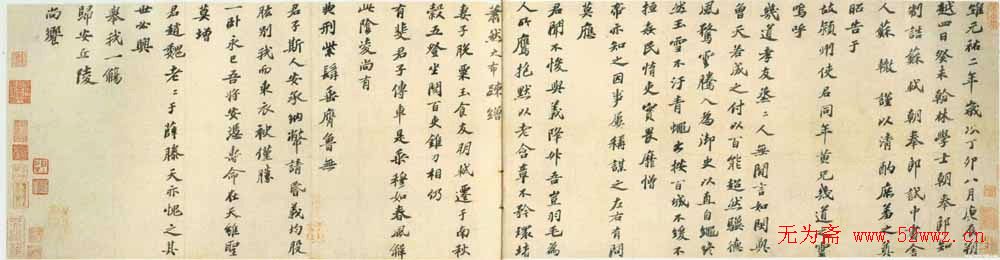 維元祐二年歲次丁卯八月庚辰朔
越四日癸未翰林學士朝奉郎知
制誥蘇軾朝奉郎試中書舍
人蘇轍謹以清酌庶羞之奠
昭告于
故潁州使君同年黃兄幾道之靈
嗚呼
幾道孝友烝烝人無閒言如閔與
曾天若成之付以百能超然驥德
風騖雲騰入為御史以直自繩
然玉雪不汙青蠅出按百城不緩不
姦民惰吏實畏靡憎
帝亦知之因事屢稱謀之左右有問
莫應
君聞不悛與義降升吾豈羽毛為
人所鷹抱默以老不矜環堵
蕭然大布疎繒
妻子脫粟玉食友朋我遷于南秋
穀五登坐閱百吏錐刀相仍
有斐君子傳車是乘穆如春風解
此陰凌尚有
典刑紫髯垂膺魯無
君子斯人安承納幣請昏義均股
肱別我而東衣袂僅勝
一臥永已吾將安憑壽命在天雖聖
莫增
君趙魏老老于薛滕天亦愧之其
世必興
舉我一觴
歸安丘陵
尚饗
无为斋 www.52wwz.cn